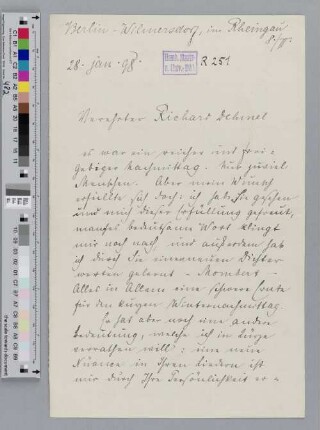 Berlin-Wilmersdorf, im Rheingau
8. III
28. Jan. 98.
R 251
Verehrter Richard Dehmel
es war ein reicher und frei-
gebiger Nachmittag. Nur zuviel
Menschen. Aber mein Wunsch
erfüllte sich doch: ich habe Sie gesehen
und mich dieser Erfüllung gefreut,
manches bedeutsame Wort klingt
mir noch nach und außerdem hab
ich durch Sie einen neuen Dichter
werten gelernt – Mombert –
Alles in Allem eine schwere Ernte
für den kurzen Winternachmittag
Er hat aber noch eine andere
Bedeutung, welche ich in Kürze
verrathen will: eine neue
Nüance in Ihren Liedern ist
mir durch Ihre Persönlichkeit er-